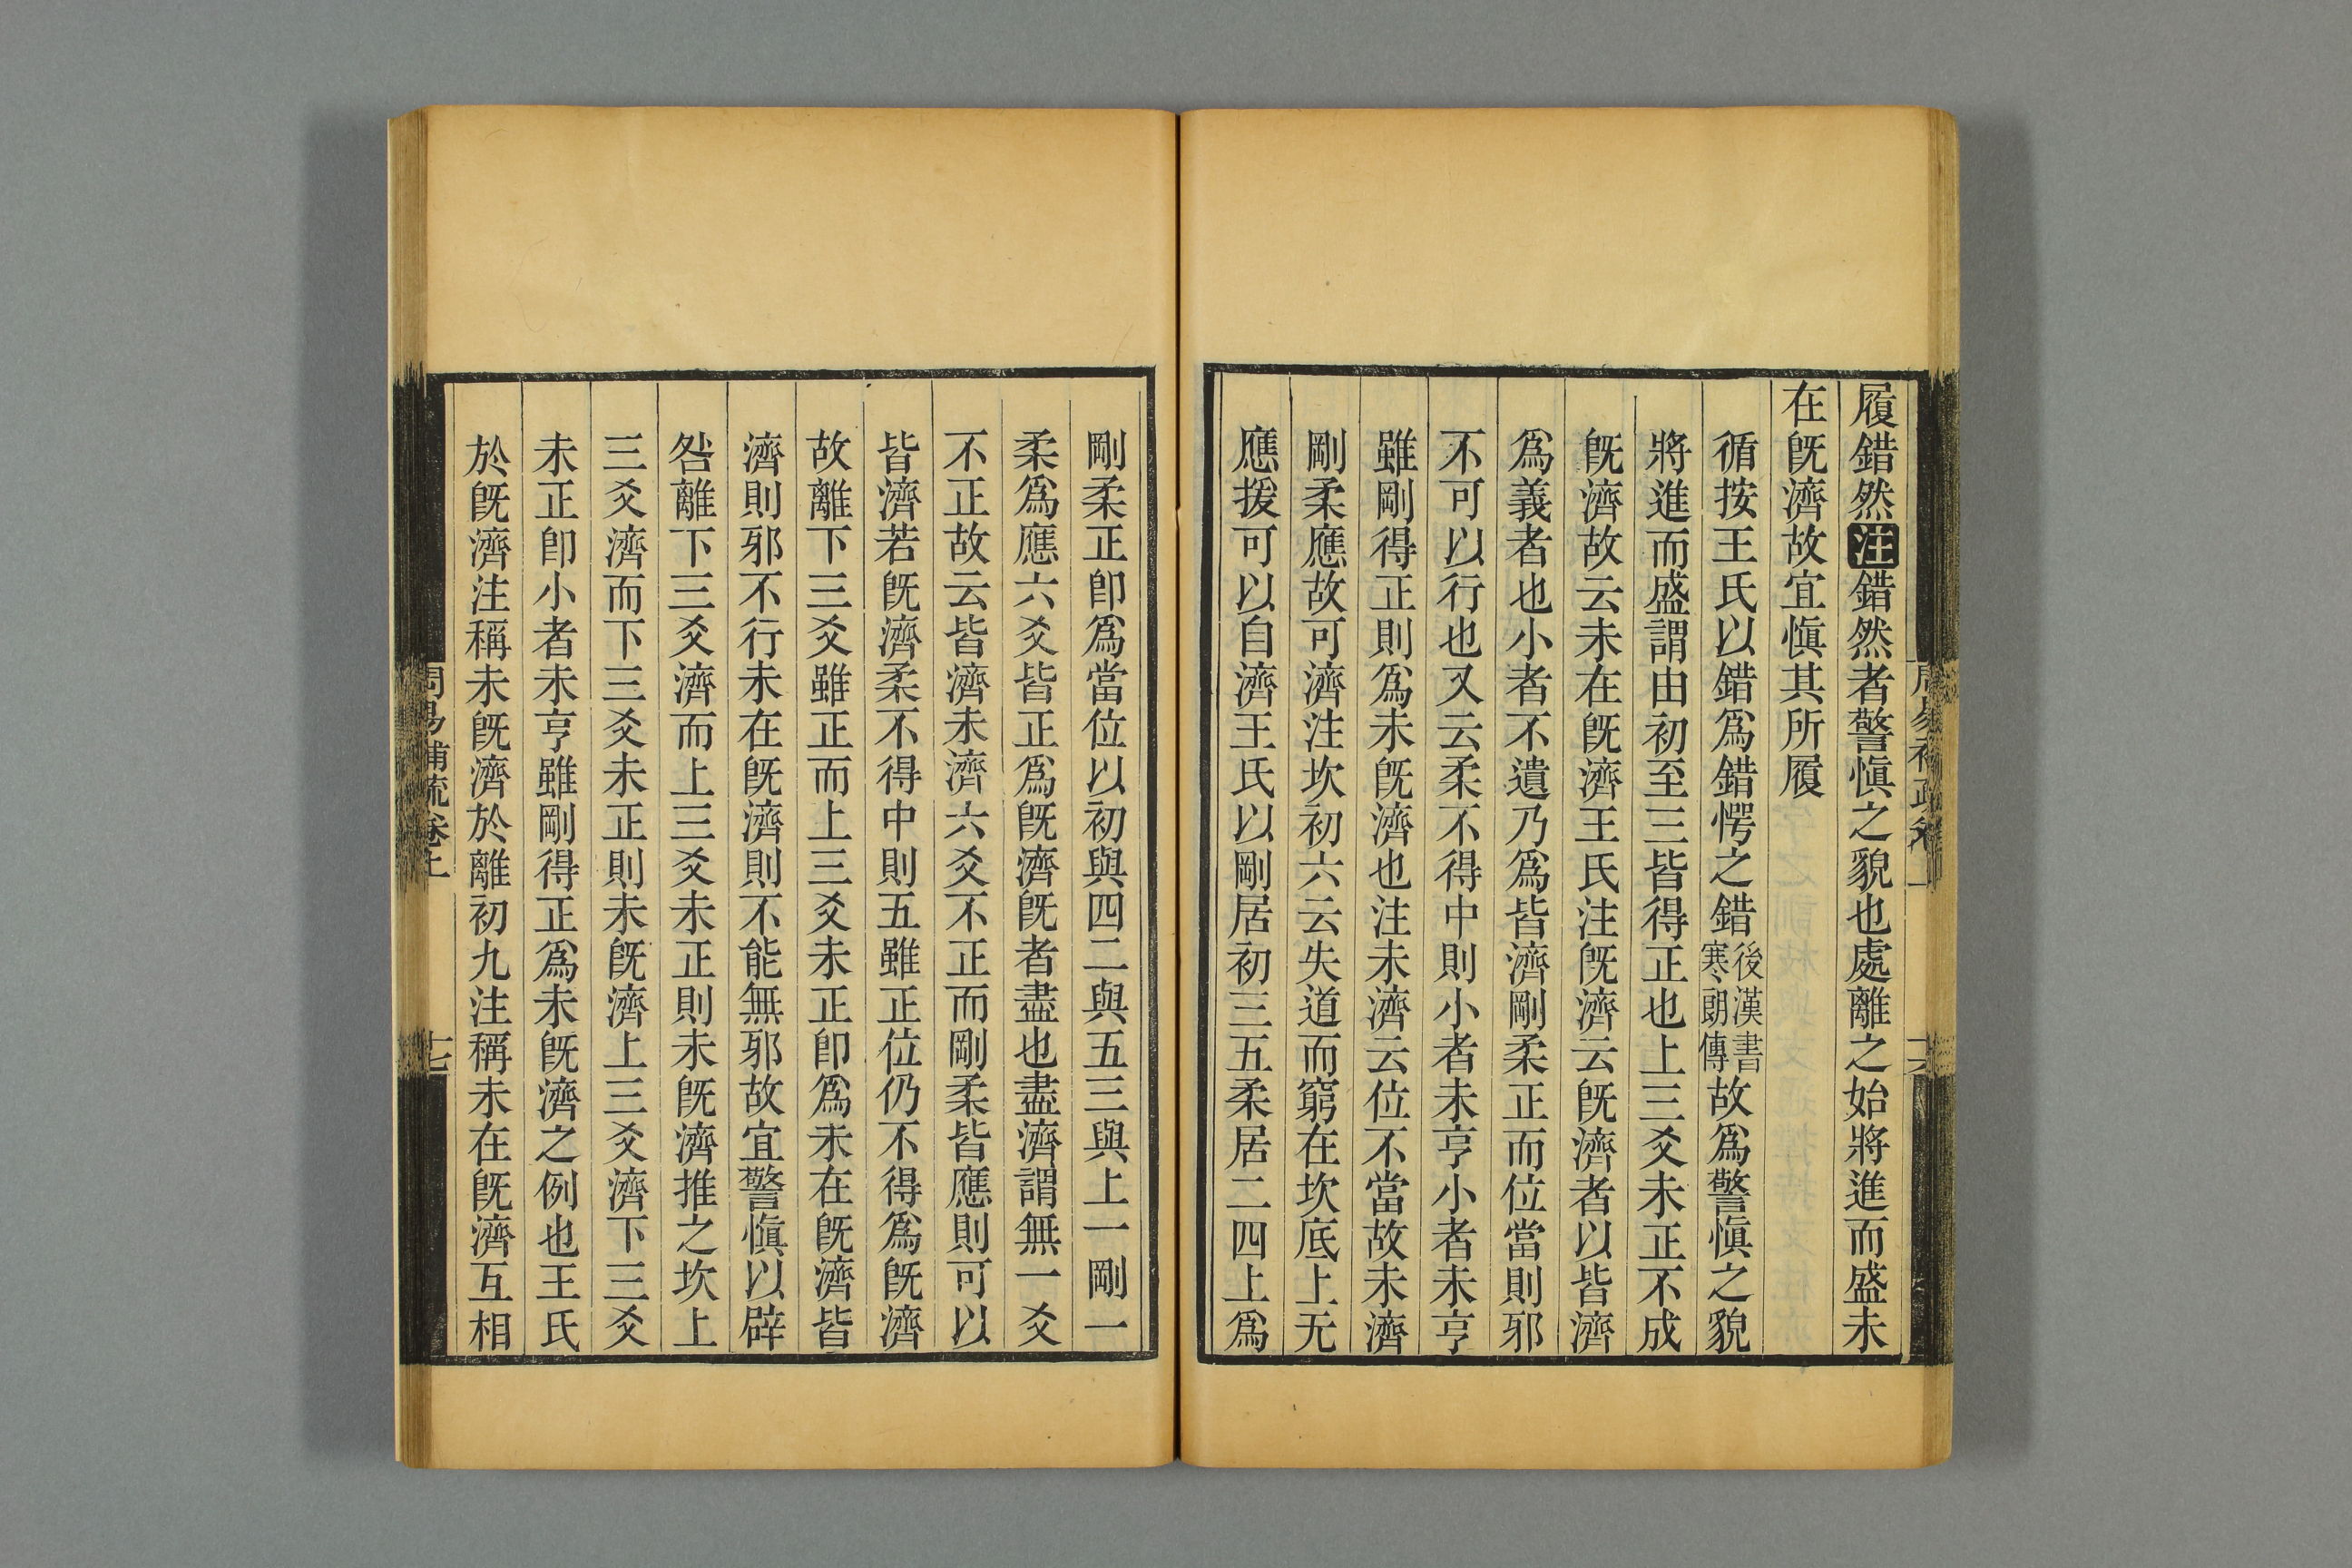 履錯然注錯然者警愼之貌也處離之始將進而盛未
在旣濟故宜愼其所履
循按王氏以錯爲錯愕之錯後漢書寒朗傳故爲警愼之貌
將進而盛謂由初至三皆得正也上三爻未正不成
旣濟故云未在旣濟王氏注旣濟云旣濟者以皆濟
爲義者也小者不遺乃爲皆濟剛柔正而位當則邪
不可以行也又云柔不得中則小者未亨小者未亨
雖剛得正則爲未旣濟也注未濟云位不當故未濟
剛柔應故可濟注坎初六云失道而窮在坎底上无
應援可以自濟王氏以剛居初三五柔居二四上爲
剛柔正卽爲當位以初與四二與五三與上一剛一
柔爲應六爻皆正爲旣濟旣者盡也盡濟謂無一爻
不正故云皆濟未濟六爻不正而剛柔皆應則可以
皆濟若旣濟柔不得中則五雖正位仍不得爲旣濟
故離下三爻雖正而上三爻未正卽爲未在旣濟皆
濟則邪不行未在旣濟則不能無邪故宜警愼以辟
咎離下三爻濟而上三爻未正則未旣濟推之坎上
三爻濟而下三爻未正則未旣濟上三爻濟下三爻
未正卽小者未亨雖剛得正爲未旣濟之例也王氏
於旣濟注稱未旣濟於離初九注稱未在旣濟互相
周易補疏卷上
十七